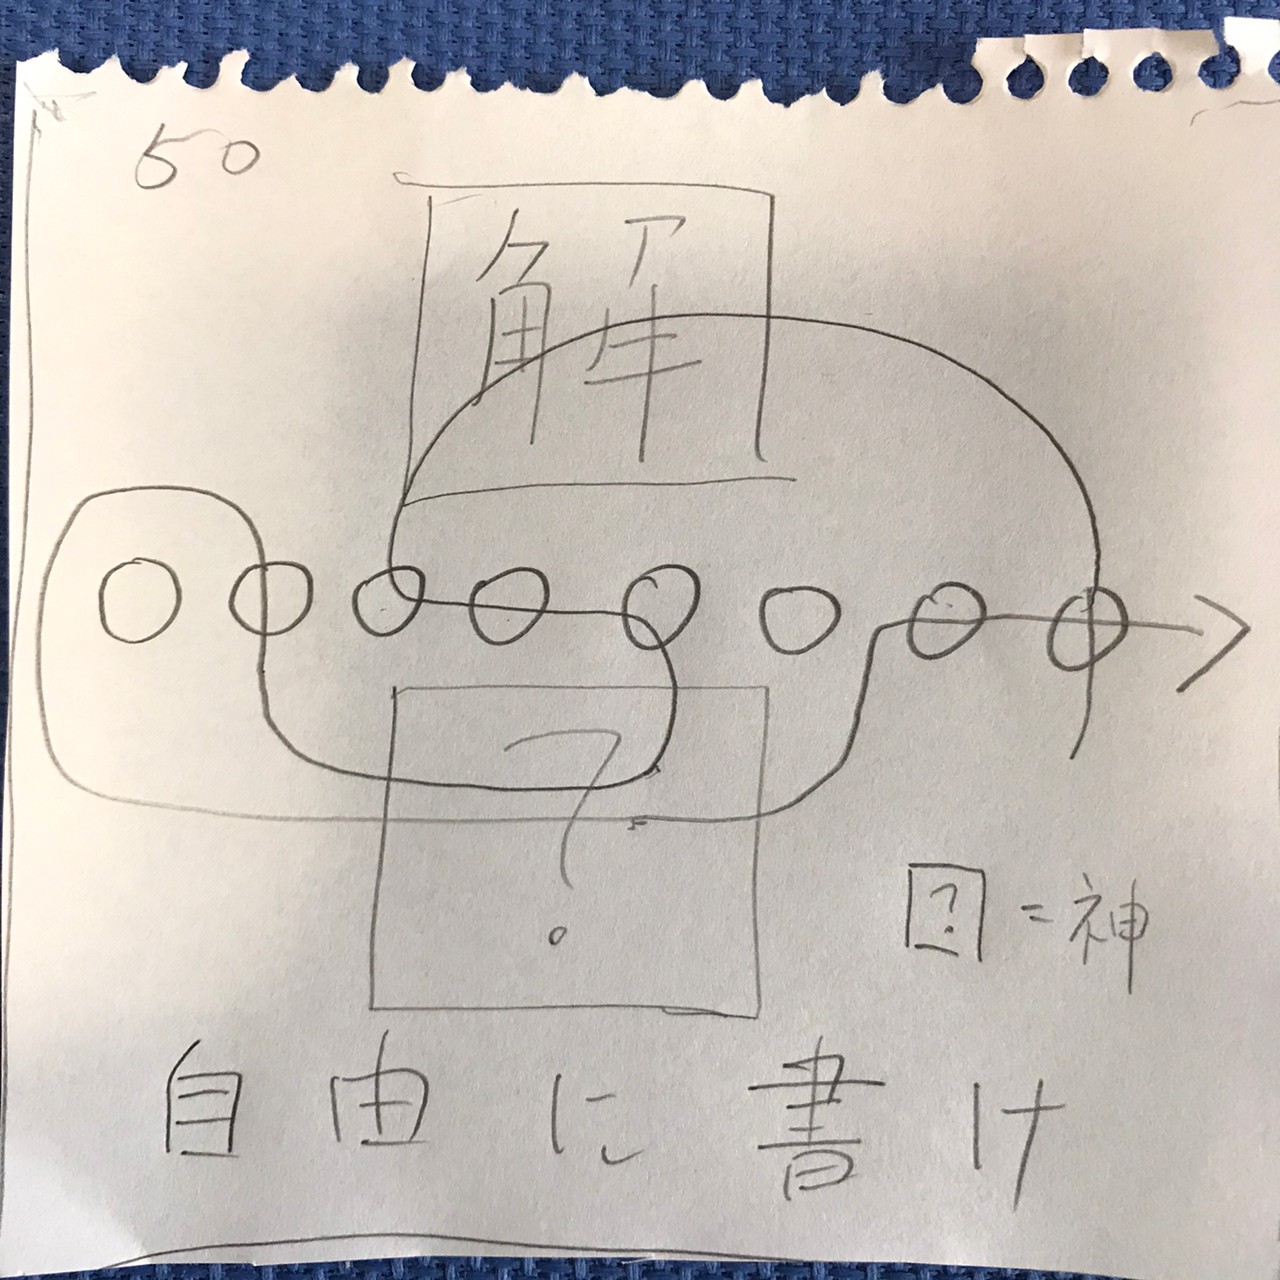 50
解
?
?=神
自由に書け